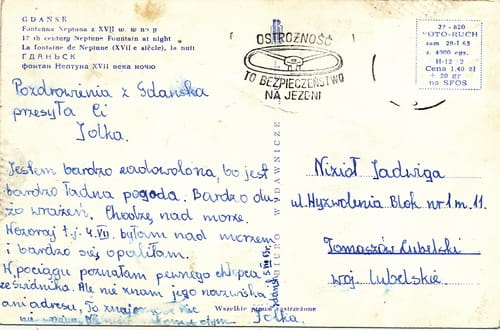 GDAŃSK
Fontanna Neptuna z XVII w. w nocy
17 th century Neptune Fountain at night
La fontaine de Neptune (XVII e siècle), la nuit
ГДАНЬСК
фонтан Нептуна XVII века ночью
OSTROŻNOŚĆ
TO BEZPIECZEŃSTWO
NA JEZDNI
27 - 620
FOTO-RUCH
zam 29-I 63
z. 4000 egz.
H-12 2
Cena 1.40 zł
+ 20 gr
na SFOS
Pozdrowienia z Gdańska
przesyła Ci
Jolka.
Jestem bardzo zadowolona, bo jest
bardzo ładna pogoda. Bardzo du
żo wrażeń. Chodzę nad morze.
Wczoraj t.j. 4.VII byłam nad morzem
i bardzo się opaliłam.
W pociągu poznałam pewnego chłopca
ze Świdnika. Ale nie znam jego nazwiska
ani adresu, To
Jolka.
BIURO WYDAWNICZE
Wszelkie prawa zastrzeżone
Nizioł Jadwiga
ul. Wyzwolenia Blok nr 1 m. 11.
Tomaszów Lubelski
woj. lubelskie